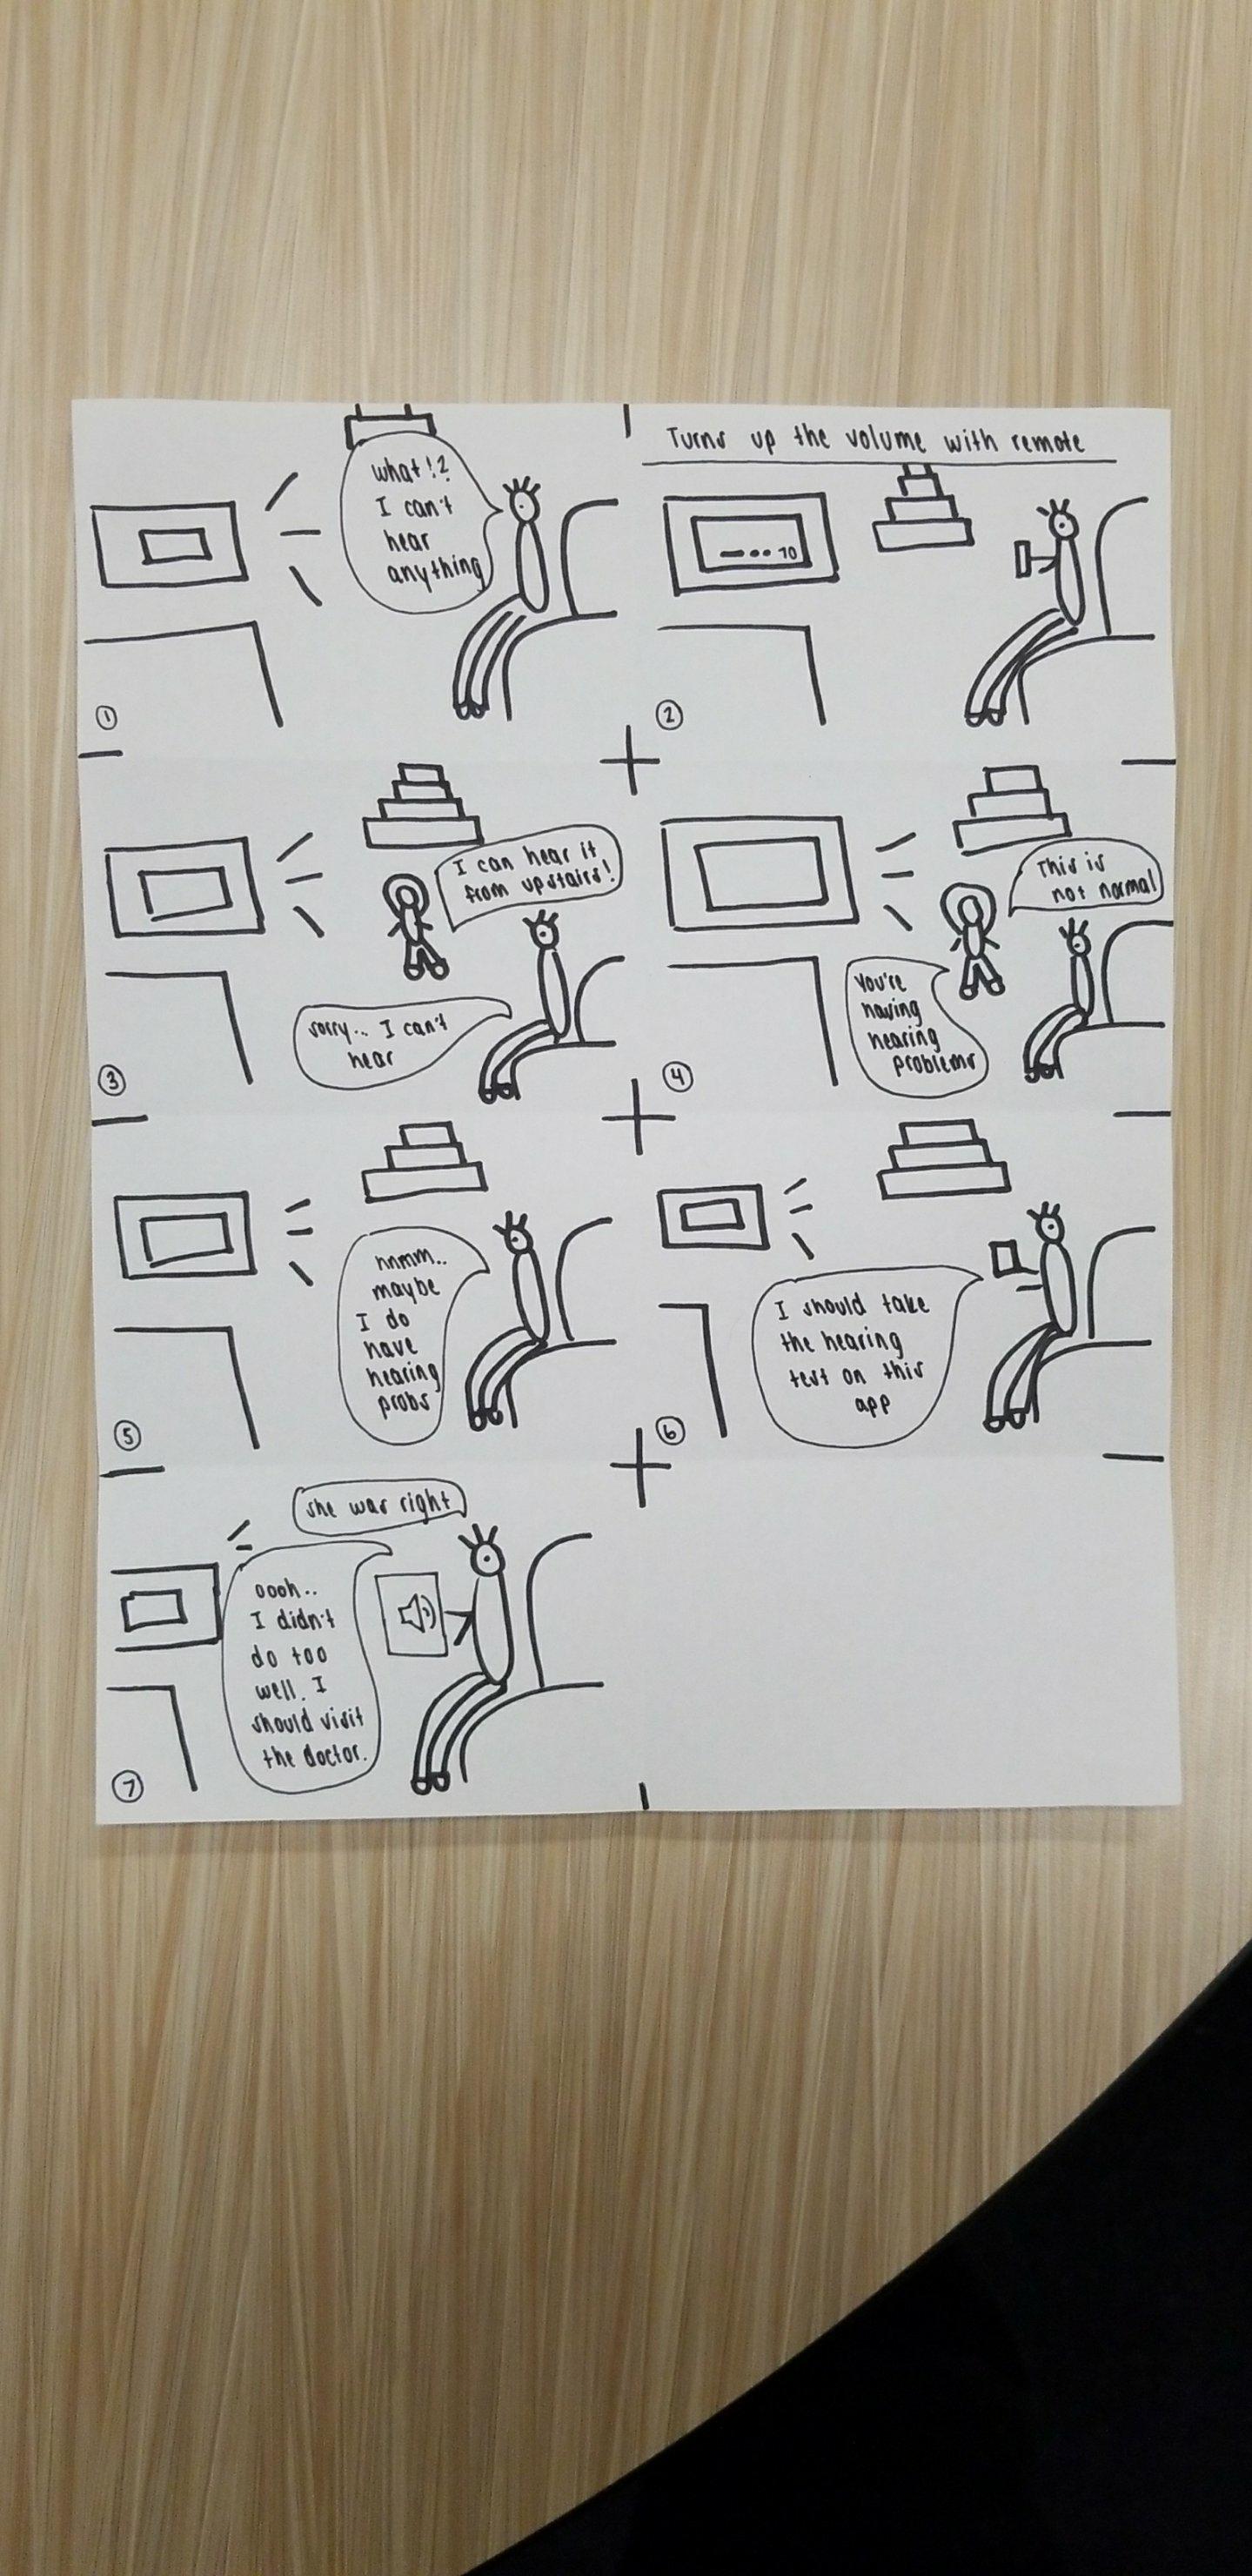 what!?
I can't
hear
anything
①
Turns up the volume with remote
70
②
I can hear it
from upstairs!
sorry... I can't
hear
③
This is
not normal
You're
having
hearing
problems
④
hnmm..
maybe
I do
have
hearing
probs
⑤
I should take
the hearing
test on this
app
⑥
she was right
oooh..
I didn't
do too
well. I
should visit
the doctor.
⑦